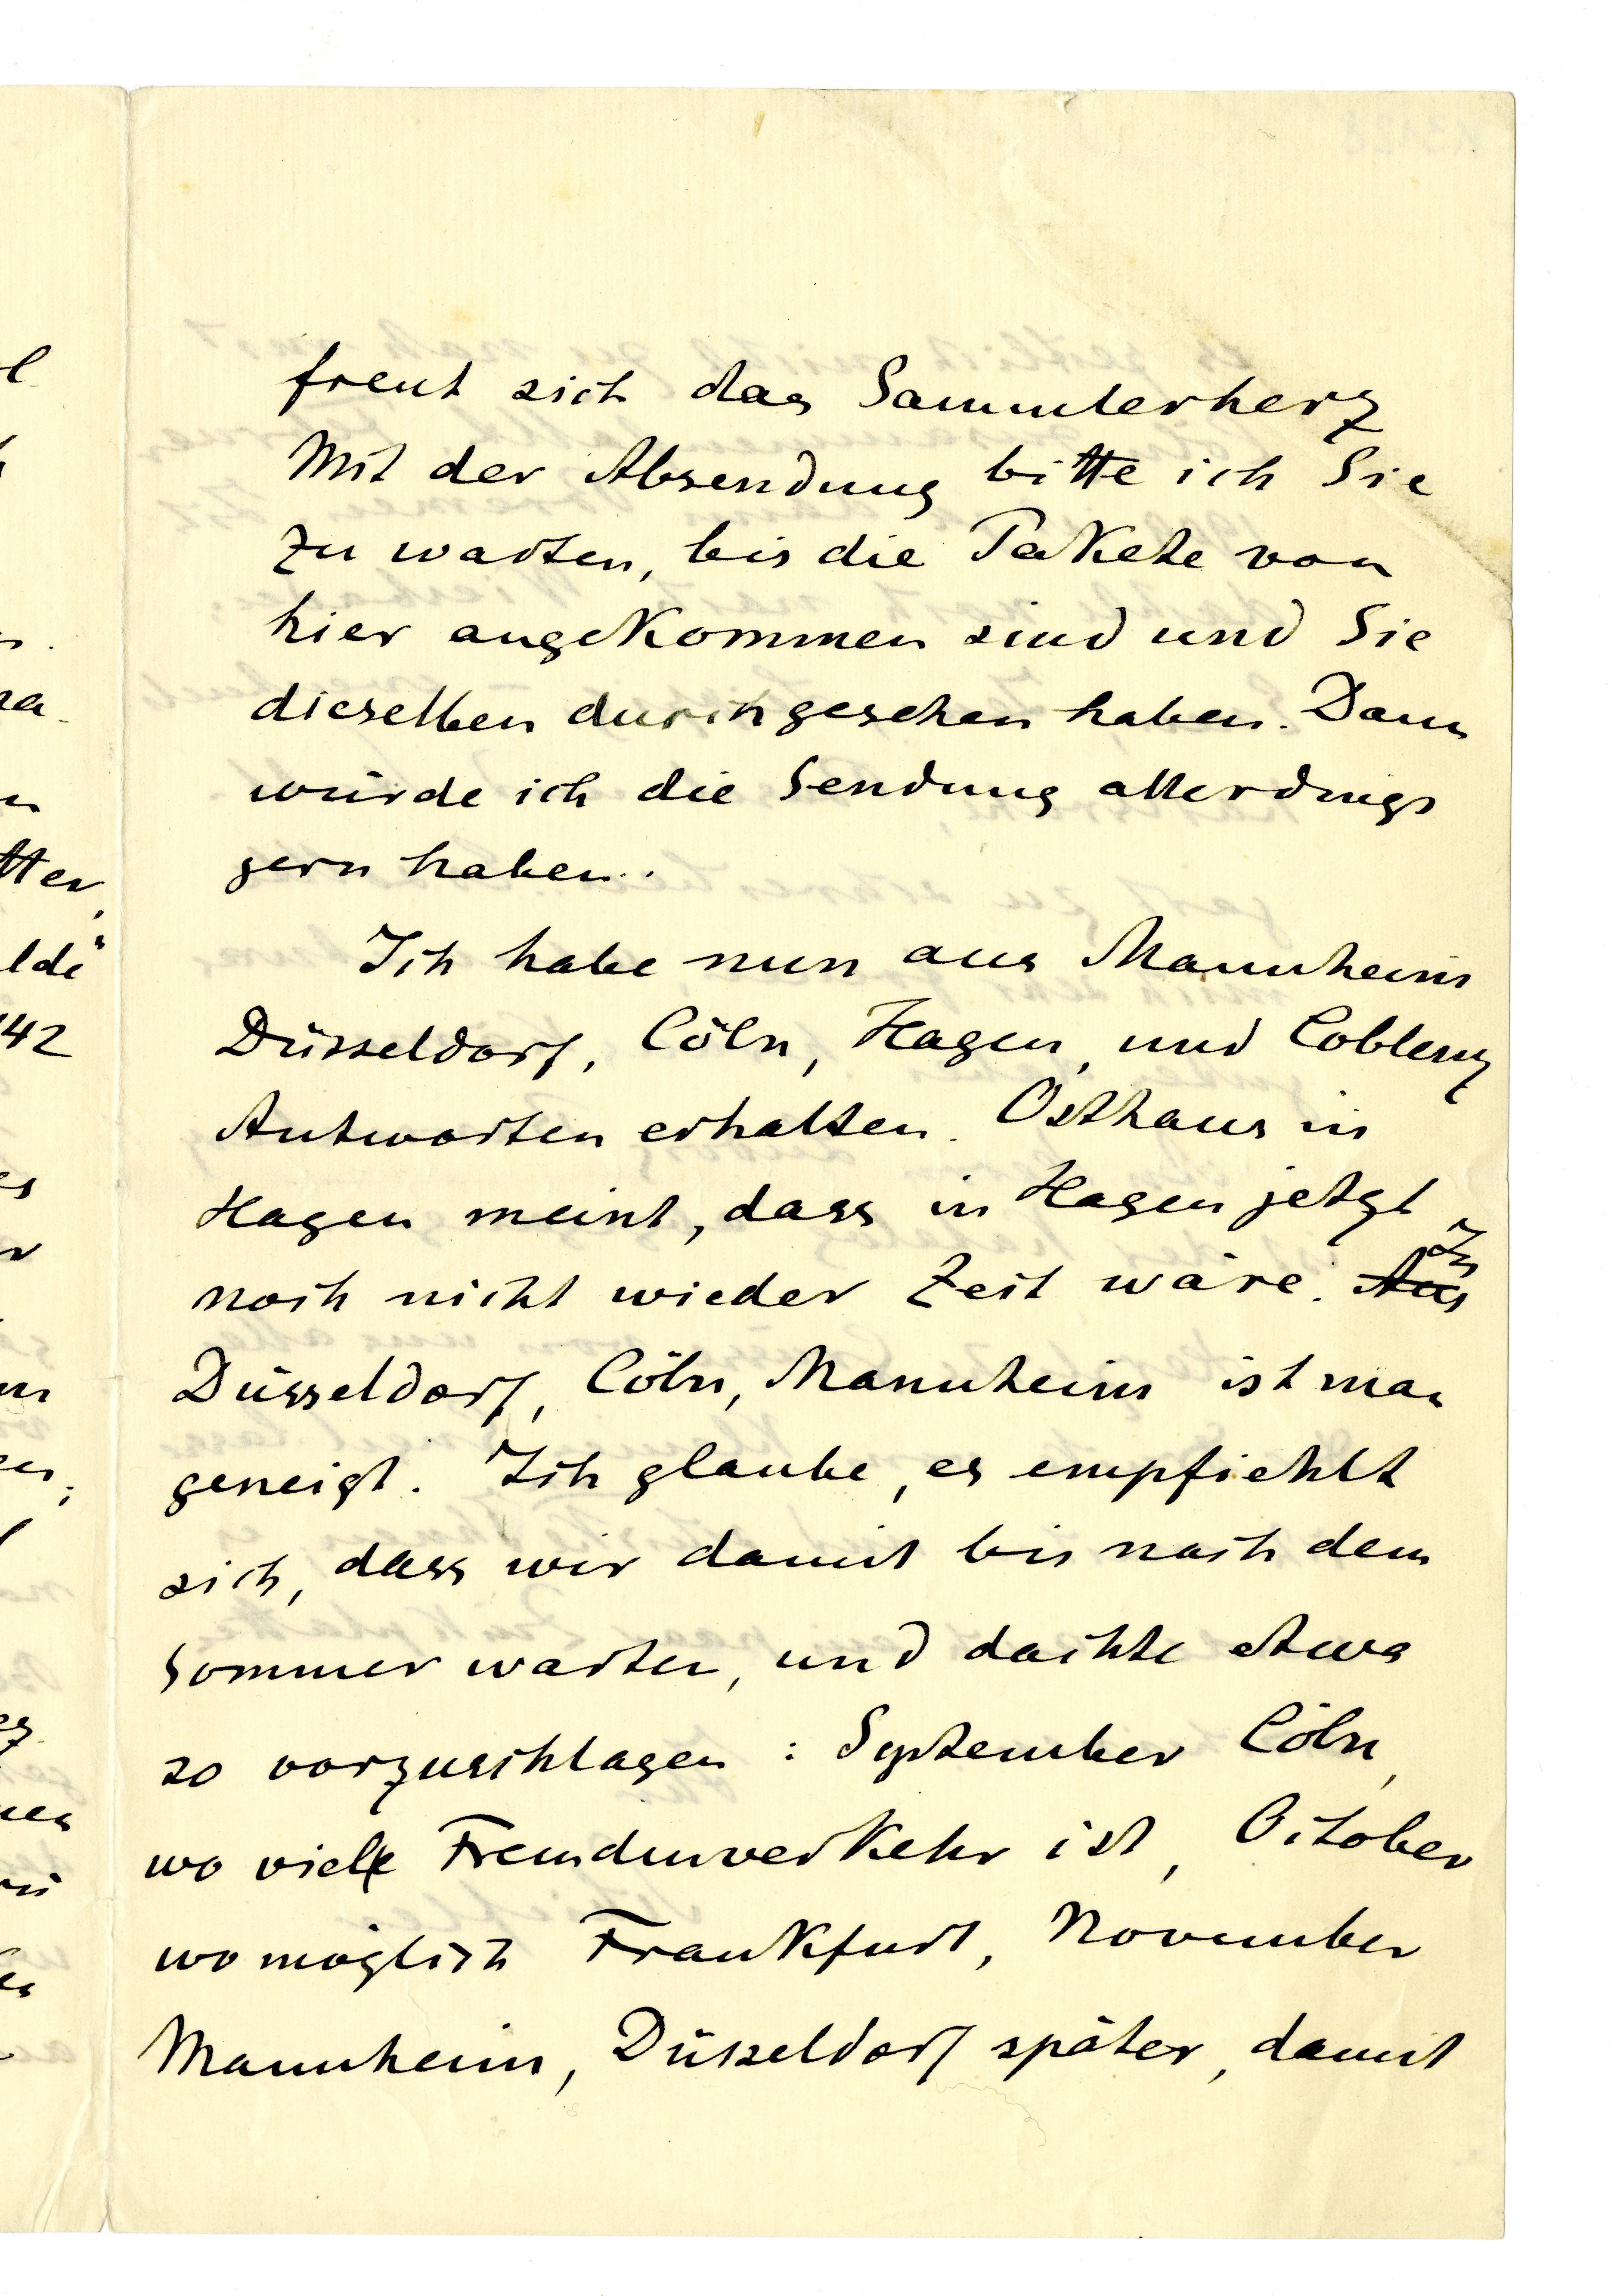 freut sich das Sammlerherz
Mit der Absendung bitte ich Sie
zu warten, bis die Pakete von
hier angekommen sind und Sie
dieselben durchgesehen haben. Dann
würde ich die Sendung allerdings
gern haben.
Ich habe nun aus Mannheim
Düsseldorf, Cöln, Hagen, und Coblenz
Antworten erhalten. Osthaus in
Hagen meint, dass in Hagen jetzt
noch nicht wieder Zeit wäre. Aus In
Düsseldorf, Cöln, Mannheim ist man
geneigt. Ich glaube, es empfiehlt
sich, dass wir damit bis nach dem
Sommer warten, und dachte etwa
so vorzuschlagen: September Cöln,
wo viel Fremdenverkehr ist, October
womöglich Frankfurt, November
Mannheim, Düsseldorf später, damit